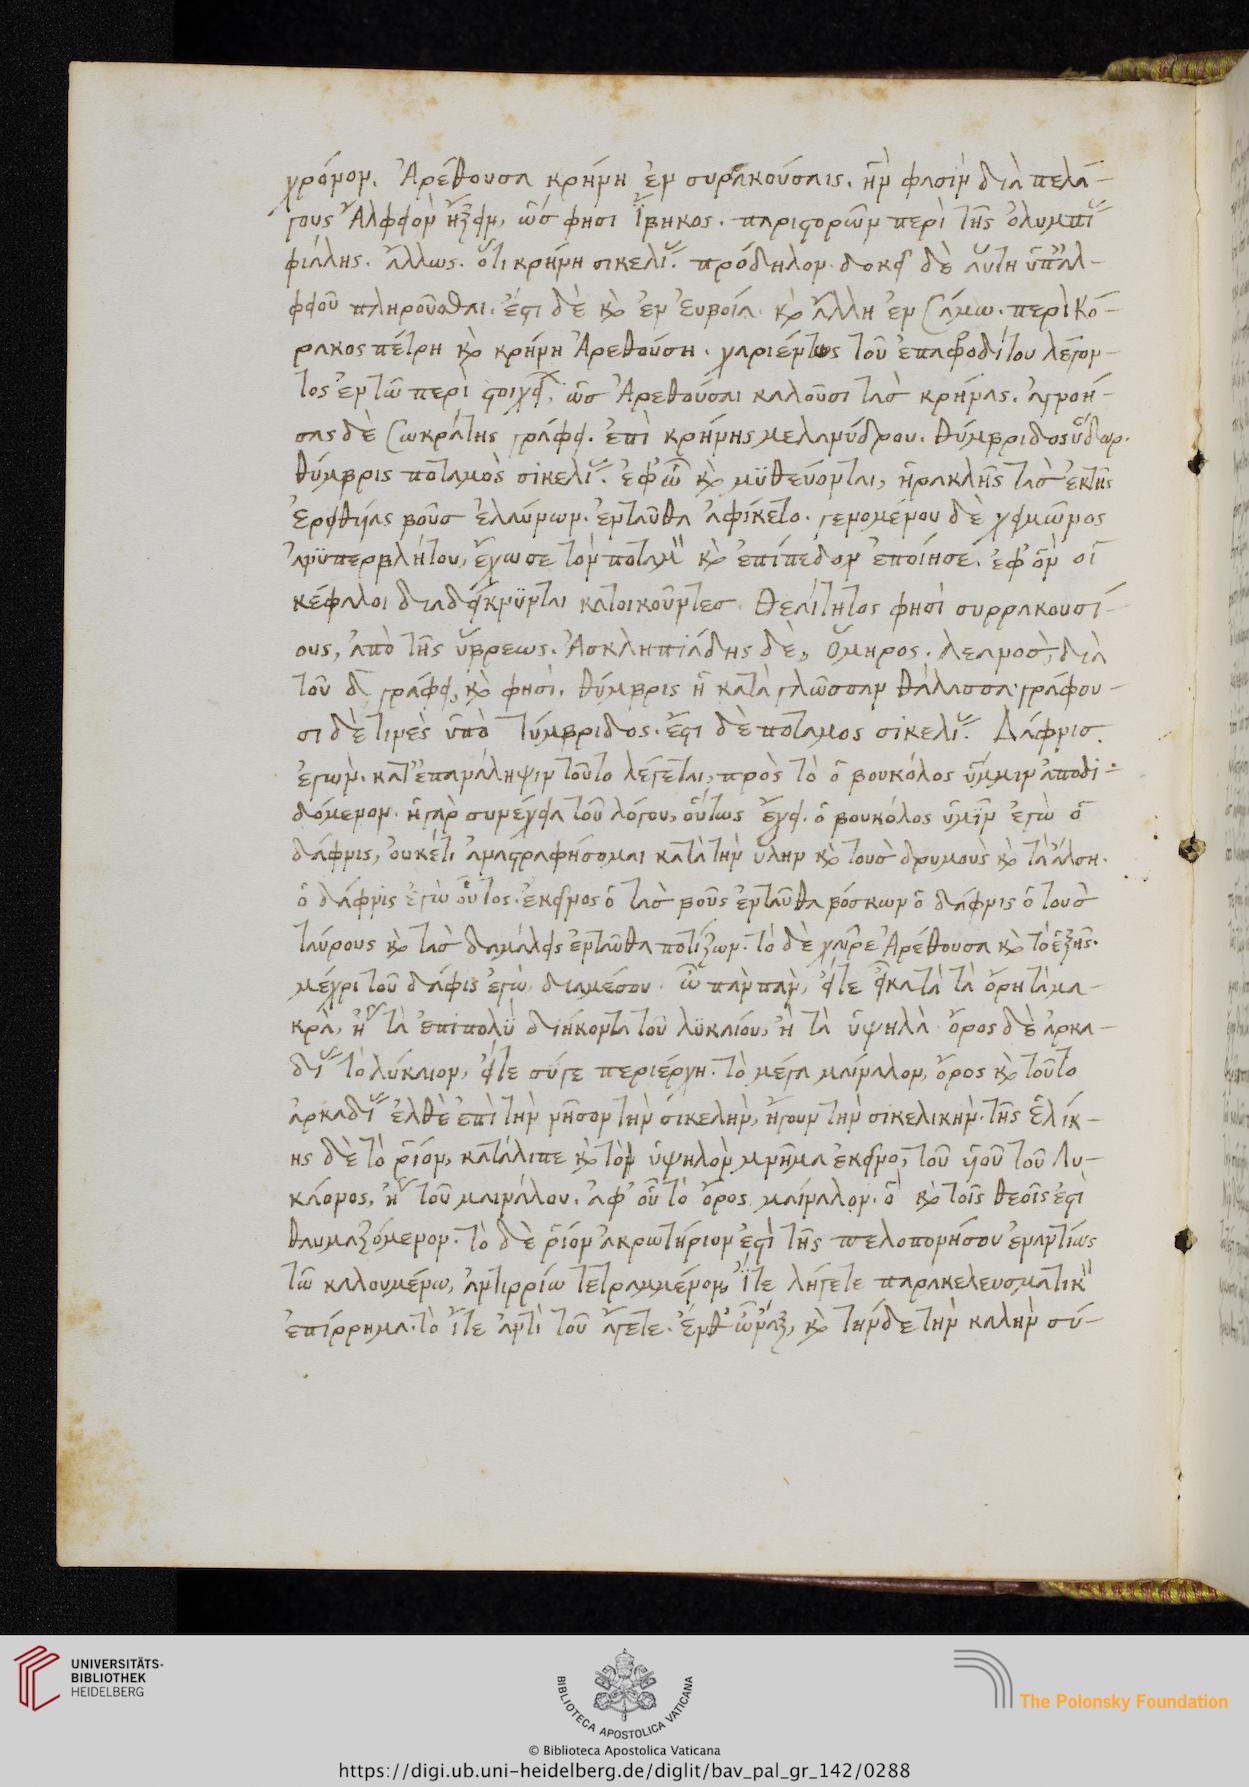 χρόνον. Ἀρέθουσα κρήνη ἐν συρακούσαις. ἣν φασὶν διὰ πελά-
γους Ἀλφειὸν ἥξειν, ὥς φησι Ἴβηκος. παριστορῶν περὶ τῆς ὀλυμπί
φιάλης. ἄλλως. ὅτι κρήνη σικελί πρόδηλον. δοκεῖ δὲ αὕτη ὑπ' ἀλ-
φειοῦ πληροῦσθαι. ἔστι δὲ κ ἐν ἐυβοία κ ἄλλη ἐν Σάμω. περὶ Κό-
ρακος πέτρη κ κρήνη Ἀρεθούση. χαριέντως τοῦ ἐπαφροδίτου λέγον-
τος ἐν τῶ περὶ στοιχεί, ὡς Ἀρεθούσαι καλοῦσι τὰς κρήνας. ἀγνοή-
σας δὲ Σωκράτης γράφει. ἐπὶ κρήνης μελανύδρου. θύμβριδος ὕδωρ.
θύμβρις ποταμὸς σικελί ἐφ' ὧ κ μυθεύονται, ἡρακλῆς τὰς ἐκ τῆς
Ἐρυθείας βοῦς ἐλαύνων. ἐνταῦθα ἀφίκετο. γενομένου δὲ χειμῶνος
ἀνυπερβλήτου, ἔχωσε τὸν ποταμ κ ἐπίπεδον ἐποίησε. ἐφ' ὃν οἱ
κέφαλοι διαδείκνυνται κατοικοῦντες. Θεαίτητος φησὶ συρρακουσί-
ους, ἀπὸ τῆς ὕβρεως. Ἀσκληπιάδης δὲ, Ὅμηρος. λεαμος, διὰ
τοῦ δ γράφει, κ φησὶ. θύμβρις ἡ κατὰ γλῶσσαν θάλασσα. γράφου-
σι δὲ τινὲς ὑπὸ Τύμβριδος. ἔστι δὲ ποταμος σικελί Δάφνις
ἐγὼν. κατ' ἐπανάληψιν τοῦτο λέγεται, πρὸς τὸ ὁ βουκόλος ὕμμιν ἀποδι-
δόμενον. ἡ γὰρ συνέχεια τοῦ λόγου, οὕτως ἔχει. ὁ βουκόλος ὑμῖν ἐγὼ ὁ
δάφνις, οὐκέτι ἀναστραφήσομαι κατὰ τὴν ὕλην κ τοὺς δρυμοὺς κ τὰ ἄλση.
ὁ δάφνις ἐγὼ οὗτος. ἐκεῖνος ὁ τὰς βοῦς ἐνταῦθα βόσκων ὁ δάφνις ὁ τοὺς
ταύρους κ τὰς δαμάλεις ἐνταῦθα ποτίζων. τὸ δὲ χαῖρε Ἀρέθουσα κ τὸ ἑξῆς.
μέχρι τοῦ δάφις ἐγὼ, διαμέσου. ὦ πὰν πὰν, εἴτε εἶ κατὰ τὰ ὄρη τὰ μα-
κρὰ, ἢ τὰ ἐπιπολὺ διήκοντα τοῦ λυκαίου, ἢ τὰ ὑψηλὰ. ὄρος δὲ ἀρκα-
δί τὸ λύκαιον, εἴτε σύγε περιέρχη. τὸ μέγα μαίναλον, ὄρος κ τοῦτο
ἀρκαδί ἐλθὲ ἐπὶ τὴν νῆσον τὴν σικελὴν, ἤγουν τὴν σικελικὴν. τῆς ἑλίκ-
ης δὲ τὸ ῥίον, κατάλιπε κ τὸν ὑψηλὸν μνῆμα ἐκεῖνο, τοῦ υἱοῦ τοῦ Λυ-
κάονος, ἢ τοῦ μαινάλου. ἀφ' οὗ τὸ ὄρος μαίναλον. ὃ κ τοῖς θεοῖς ἐστὶ
θαυμαζόμενον. τὸ δὲ ῥίον ἀκρωτήριον ἐστὶ τῆς πελοπονήσου ἐναντίως
τῶ καλουμένω, ἀντιρρίω τετραμμένον, ἴτε λήγετε παρακελευσματικ
ἐπίρρημα. τὸ ἴτε ἀντὶ τοῦ ἄγετε. ἔνθ' ὦναξ, κ τήνδε τὴν καλὴν σύ-
UNIVERSITÄTS-
BIBLIOTHEK
HEIDELBERG
BIBLIOTECA APOSTOLICA VATICANA
The Polonsky Foundation
© Biblioteca Apostolica Vaticana
https://digi.ub.uni-heidelberg.de/diglit/bav_pal_gr_142/0288